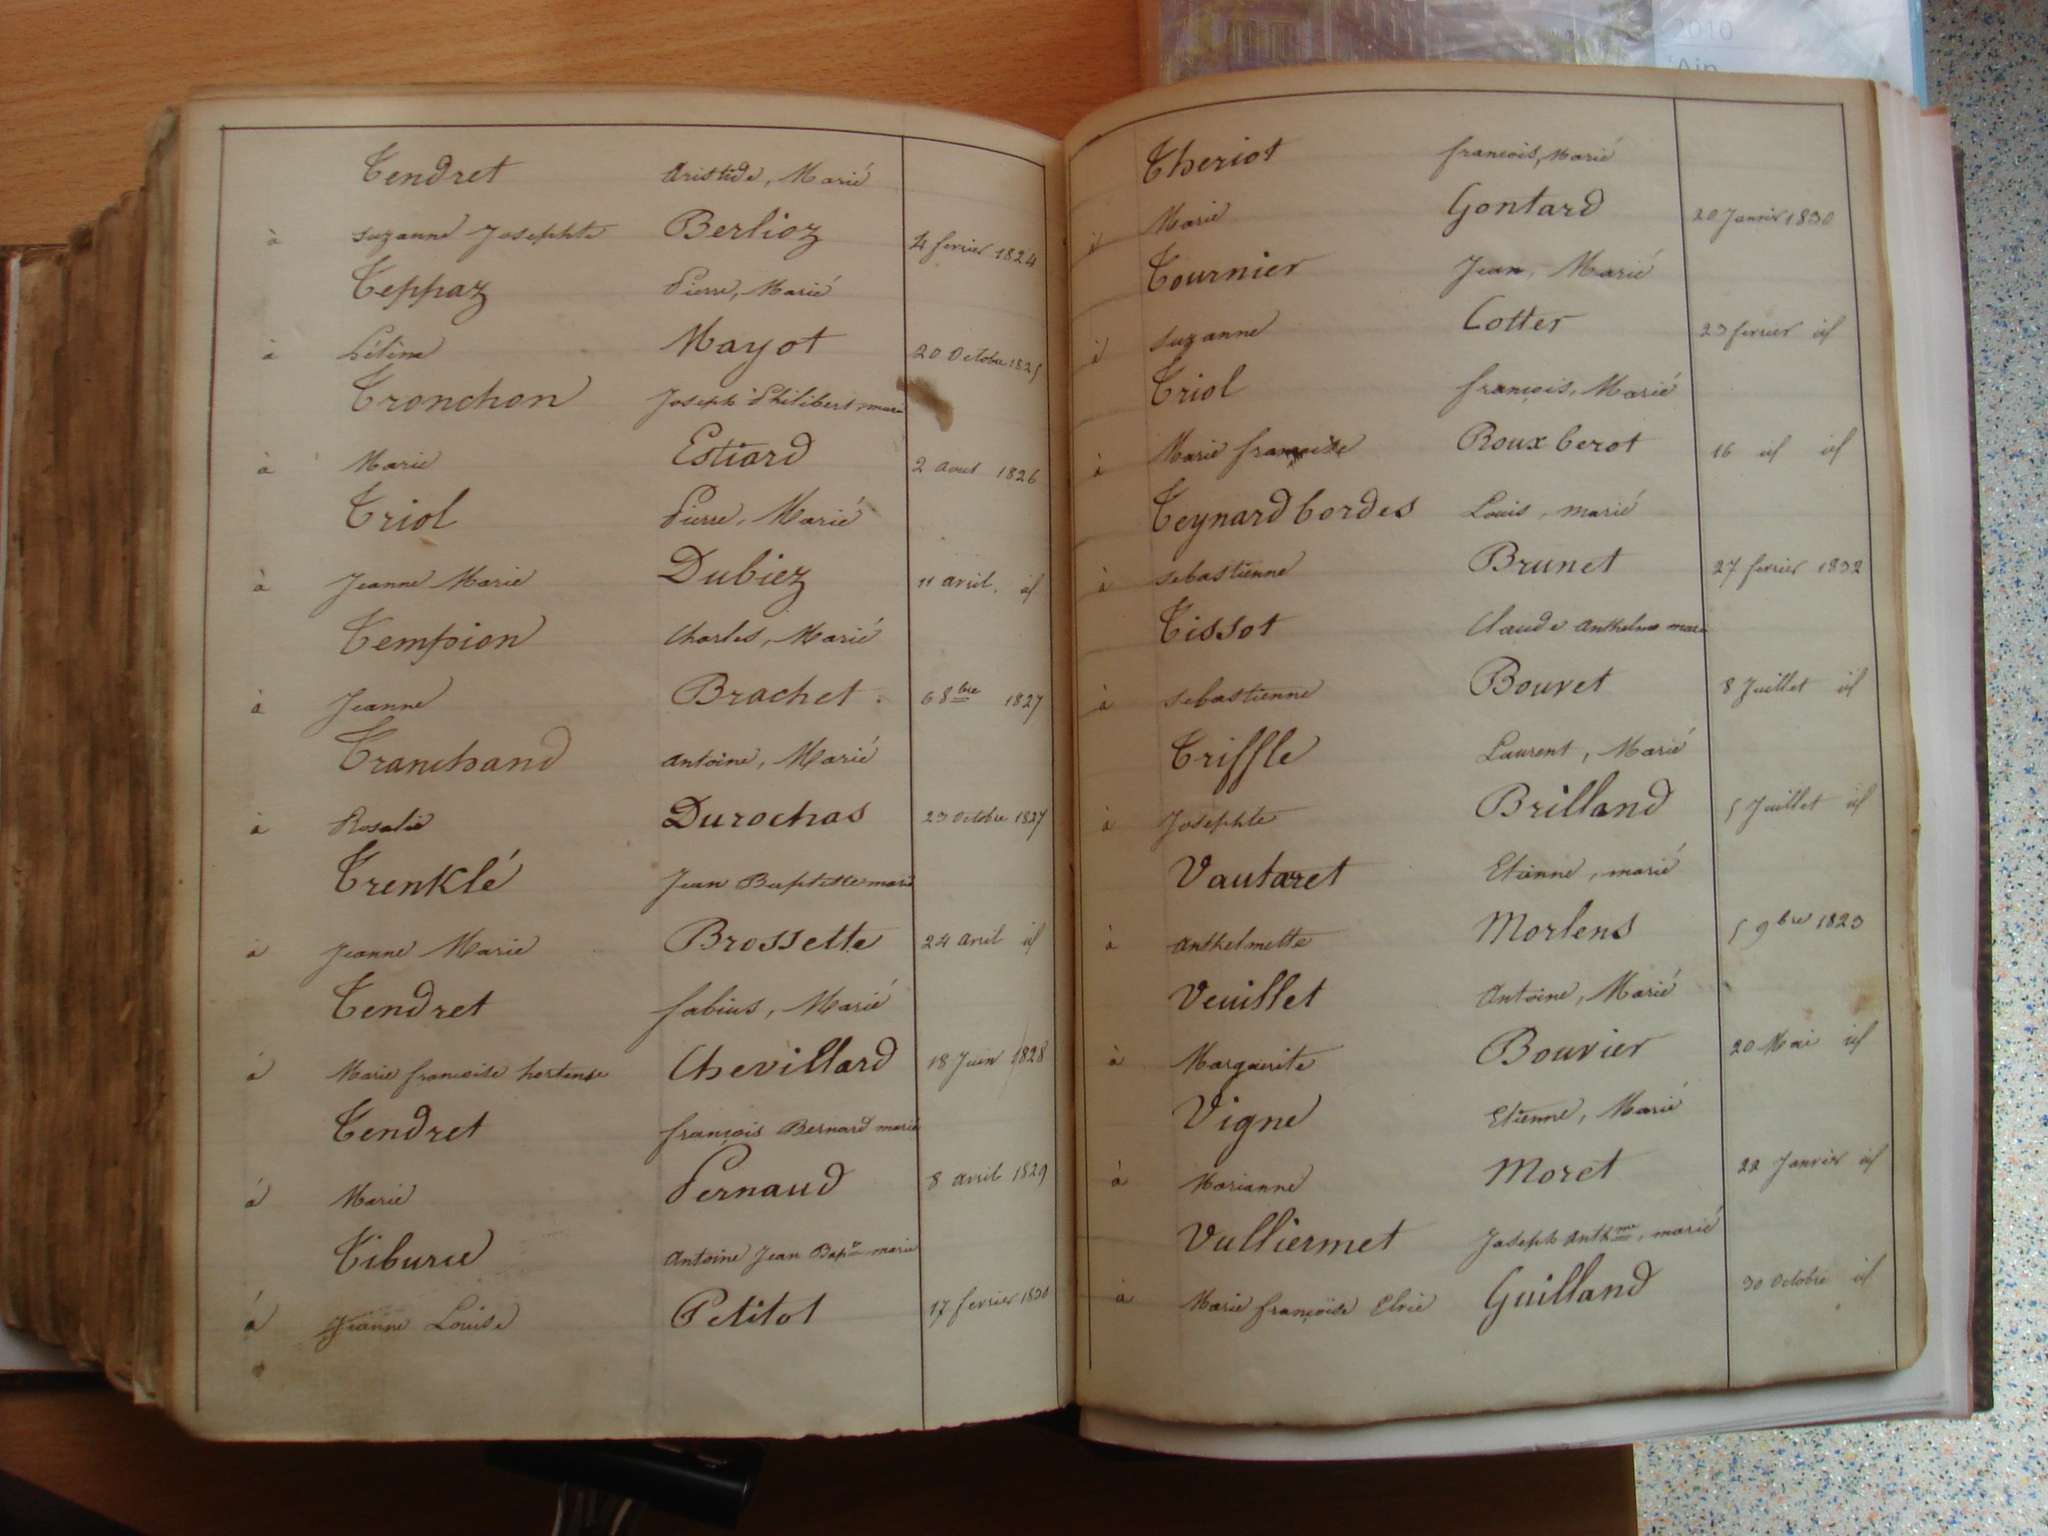 Tendret Aristide, Marié
à suzanne Josephte Berlioz 4 fevrier 1824
Teppaz Pierre, Marié
à hélène Mayot 20 Octobre 1825
Tronchon Joseph Philibert, marié
à Marie Estiard 2 aout 1826
Triol Pierre, Marié
à Jeanne Marie Dubiez 11 avril. id
Tempion Charles, Marié
à Jeanne Brachet 6 8bre 1827
Tranchand Antoine, Marié
à Rosalie Durochas 23 Octobre 1827
Trenklé Jean Baptiste marié
à Jeanne Marie Brossette 24 avril id
Tendret fabius, Marié
à Marie francoise hortense Chevillard 18 Juin 1828
Tendret françois Bernard marié
à Marie Pernaud 8 avril 1829
Tiburce Antoine Jean Bapte marié
à Jeanne Louise Petitot 17 fevrier 1830
2010
Ain
Theriot francois, Marié
à Marie Gontard 20 Janvier 1830
Tournier Jean, Marié
à suzanne Cotter 23 fevrier id
Triol françois, Marié
à Marie francoise Roux berot 16 id id
Teynard bordes Louis, marié
à sebastienne Brunet 27 fevrier 1832
Tissot Claude Anthelme marié
à sebastienne Bouvet 8 Juillet id
Triffle Laurent, Marié
à Josephte Brilland 5 Juillet id
Vautaret Etienne, marié
à anthelmette Morlens 5 9bre 1823
Veuillet Antoine, Marié
à Marguerite Bouvier 20 Mai id
Vigne Etienne, Marié
à Marianne Moret 22 Janvier id
Vulliermet Joseph Anthme, marié
à Marie françoise Guilland 30 Octobre id